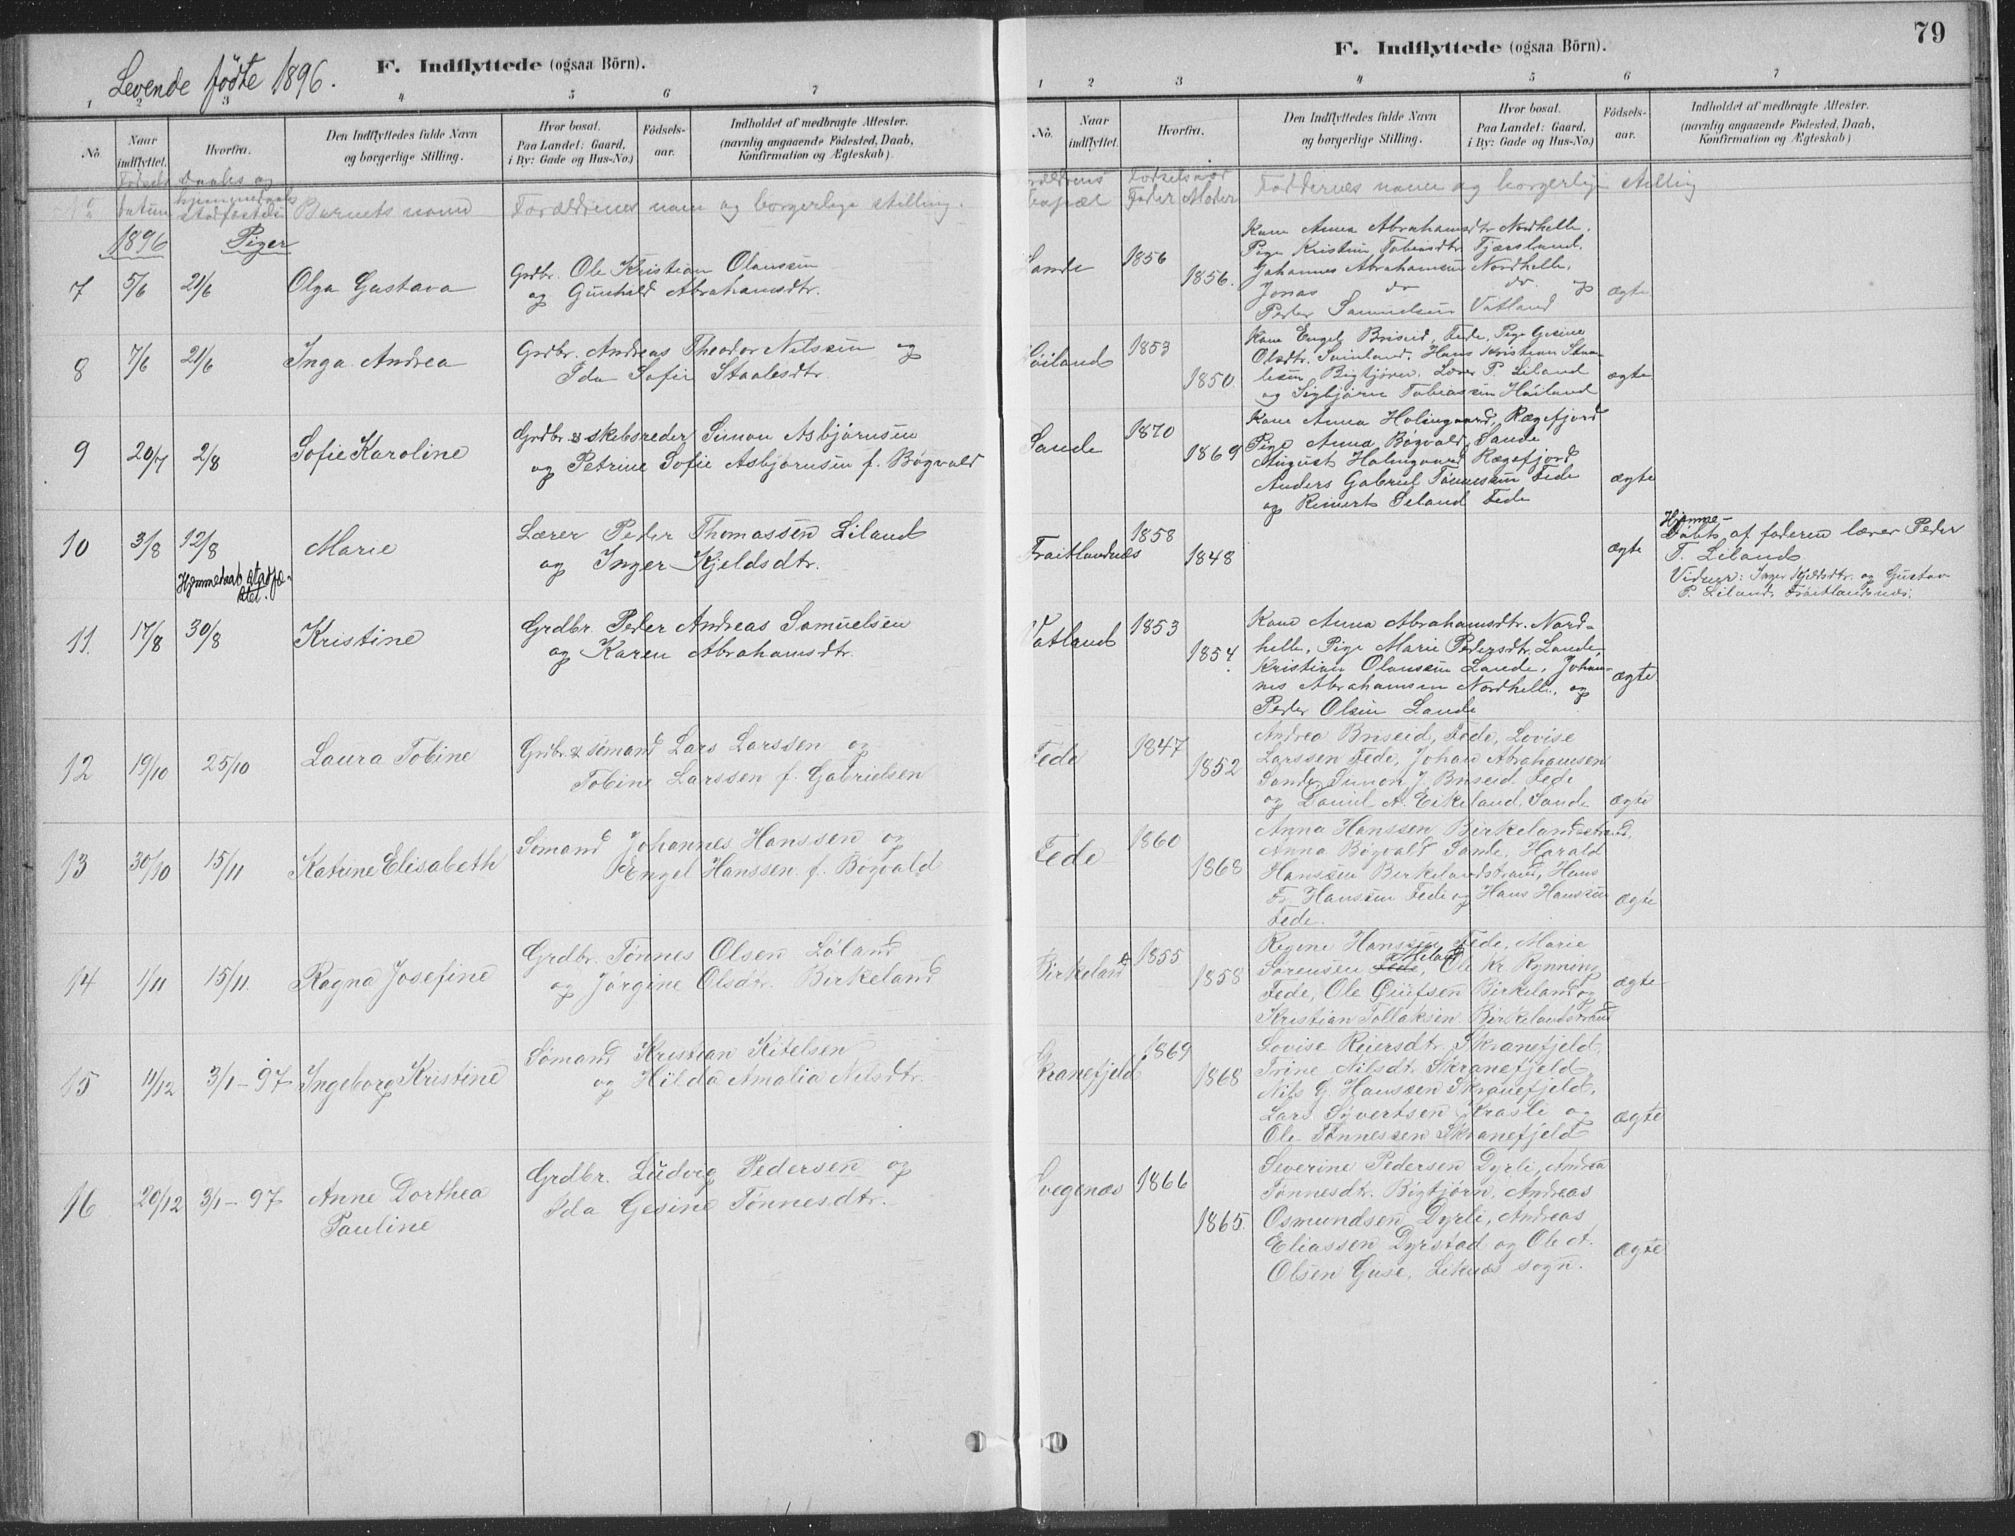 Levende fødte 1896.
F. Indflyttede (ogsaa Börn).
1 2 3 4 5 6 7
No.
Naar indflyttet.
Hvorfra.
Den Indflyttedes fulde Navn
og borgerlige Stilling.
Hvor bosat.
Paa Landet: Gaard,
i By: Gade og Hus-No.)
Födsels-
aar.
Indholdet af medbragte Attester.
(navnlig angaaende Födested, Daab,
Konfirmation og Ægteskab).
Fødsels datum
Daabs og hjemmedaabs stadfæstelse
Barnets navn
Forældrenes navn og borgerlige stilling.
1896
Piger
7 5/6 21/6 Olga Gustava
Grdbr. Ole Kristian Olaussen
og Gunhild Abrahamsdtr.
8 7/6 21/6 Inga Andrea
Grdbr. Andreas Theodor Nilssen og
Ida Sofie Staalesdtr.
9 20/7 2/8 Sofie Karoline
Grdbr. & skebsreder Simon Asbjørnsen
og Petrine Sofie Asbjørnsen f. Bøgvald
10 3/8 12/8 Marie
Hjemmedaab stadfæ-
stet.
Lærer Peder Thomassen Liland
og Inger Kjeldsdtr.
11. 17/8 30/8 Kristine
Grdbr. Peder Andreas Samuelsen
og Karen Abrahamsdtr.
12 19/10 25/10 Laura Tobine
Grdbr. & sømand Lars Larssen og
Tobine Larssen f. Gabrielsen
13 30/10 15/11 Katrine Elisabeth
Sømand Johannes Hanssen og
Engel Hanssen f. Bøgvald
14 1/11 15/11. Ragna Josefine
Grdbr. Tønnes Olsen Løland
og Jørgine Olsdtr. Birkeland
15 11/12 3/1-97 Ingeborg Kristine
Sømand Kristian Kitelsen
og Hilda Amalia Nilsdtr.
16 20/12 3/1-97 Anne Dorthea
Pauline
Grdbr. Ludvig Pedersen og
Ida Gesine Tønnesdtr.
79
F. Indflyttede (ogsaa Börn).
1 2 3 4 5 6 7
No.
Naar indflyttet.
Hvorfra.
Den Indflyttedes fulde Navn
og borgerlige Stilling.
Hvor bosat.
Paa Landet: Gaard,
i By: Gade og Hus-No.)
Födsels-
aar.
Indholdet af medbragte Attester.
(navnlig angaaende Födested, Daab,
Konfirmation og Ægteskab)
Fødselsaar
Fader Moder
Faddernes navn og borgerlige stilling
Lande 1856 1856.
Kone Anna Abrahamsdtr. Nordhelle.
Pige Kristine Tobiasdtr. Fjærsland.
Johannes Abrahamsen Nordhelle,
Jonas do do og
Peder Samuelsen Vatland
ægte
Høiland 1853 1850.
Kone Engel Briseid, Fede, Pige Gesine
Olsdtr. Hans Kristian Staa-
lesen Bigtjørn. Lærer P. Liland
og Sigbjørn Tobiassen Høiland
ægte
Sande 1870 1869
Kone Anna Holmgaard, Rægefjord
Pige Anna Bøgvald, Sande
August Holmgaard Rægefjord
Anders Gabriel Tønnessen Fede
og Reinert Seland Fede
ægte
Fraitlandnæs 1858 1848
ægte
Hjemme-
døbt af faderen lærer Peder
T. Liland.
Vidner: Inger Kjeldsdtr. og Gustav
P. Liland, Fraitlandsnæs.
Vatland 1853 1854.
Kone Anna Abrahamsdtr. Nord-
helle, Pige Marie Pedersdtr. Lande,
Kristian Olaussen Lande, Johan-
nes Abrahamsen Nordhelle, og
Peder Olsen Lande
ægte
Fede 1847 1852
Andrea Briseid, Fede, Lovise
Larssen Fede, Johan Abrahamsen
Sande, Simon J. Briseid Fede
og Daniel A. Eikeland, Sande
ægte
Fede 1860 1868
Anna Hanssen Birkelandsstrand,
Anna Bøgvald Sande, Harald
Hanssen Birkelandstrand, Hans
Fr. Hanssen Fede og Hans Hanssen
Fede.
ægte
Birkeland 1855 1858
Regine Hanssen Fede, Marie
Sørensen Fede, Ole Kr. Rynning
Fede, Ole Birkeland og
Kristian Tollaksen Birkelandstrand
ægte
Skranefjeld 1869 1868
Lovise Reiersdtr. Skranefjeld.
Trine Nilsdt. Skranefjeld
Nils G. Hanssen Skranefjeld,
Lars Syvertsen Kraali og
Ole Tønnessen Skranefjeld
ægte
Svegenæs 1866 1865.
Severine Pedersen Dyrli, Andrea
Tønnesdtr. Bigtjørn, Andreas
Osmundsen Dyrli, Andreas
Eliassen Dyrstad og Ole A.
Olsen Guse, Liknæs sogn.
ægte